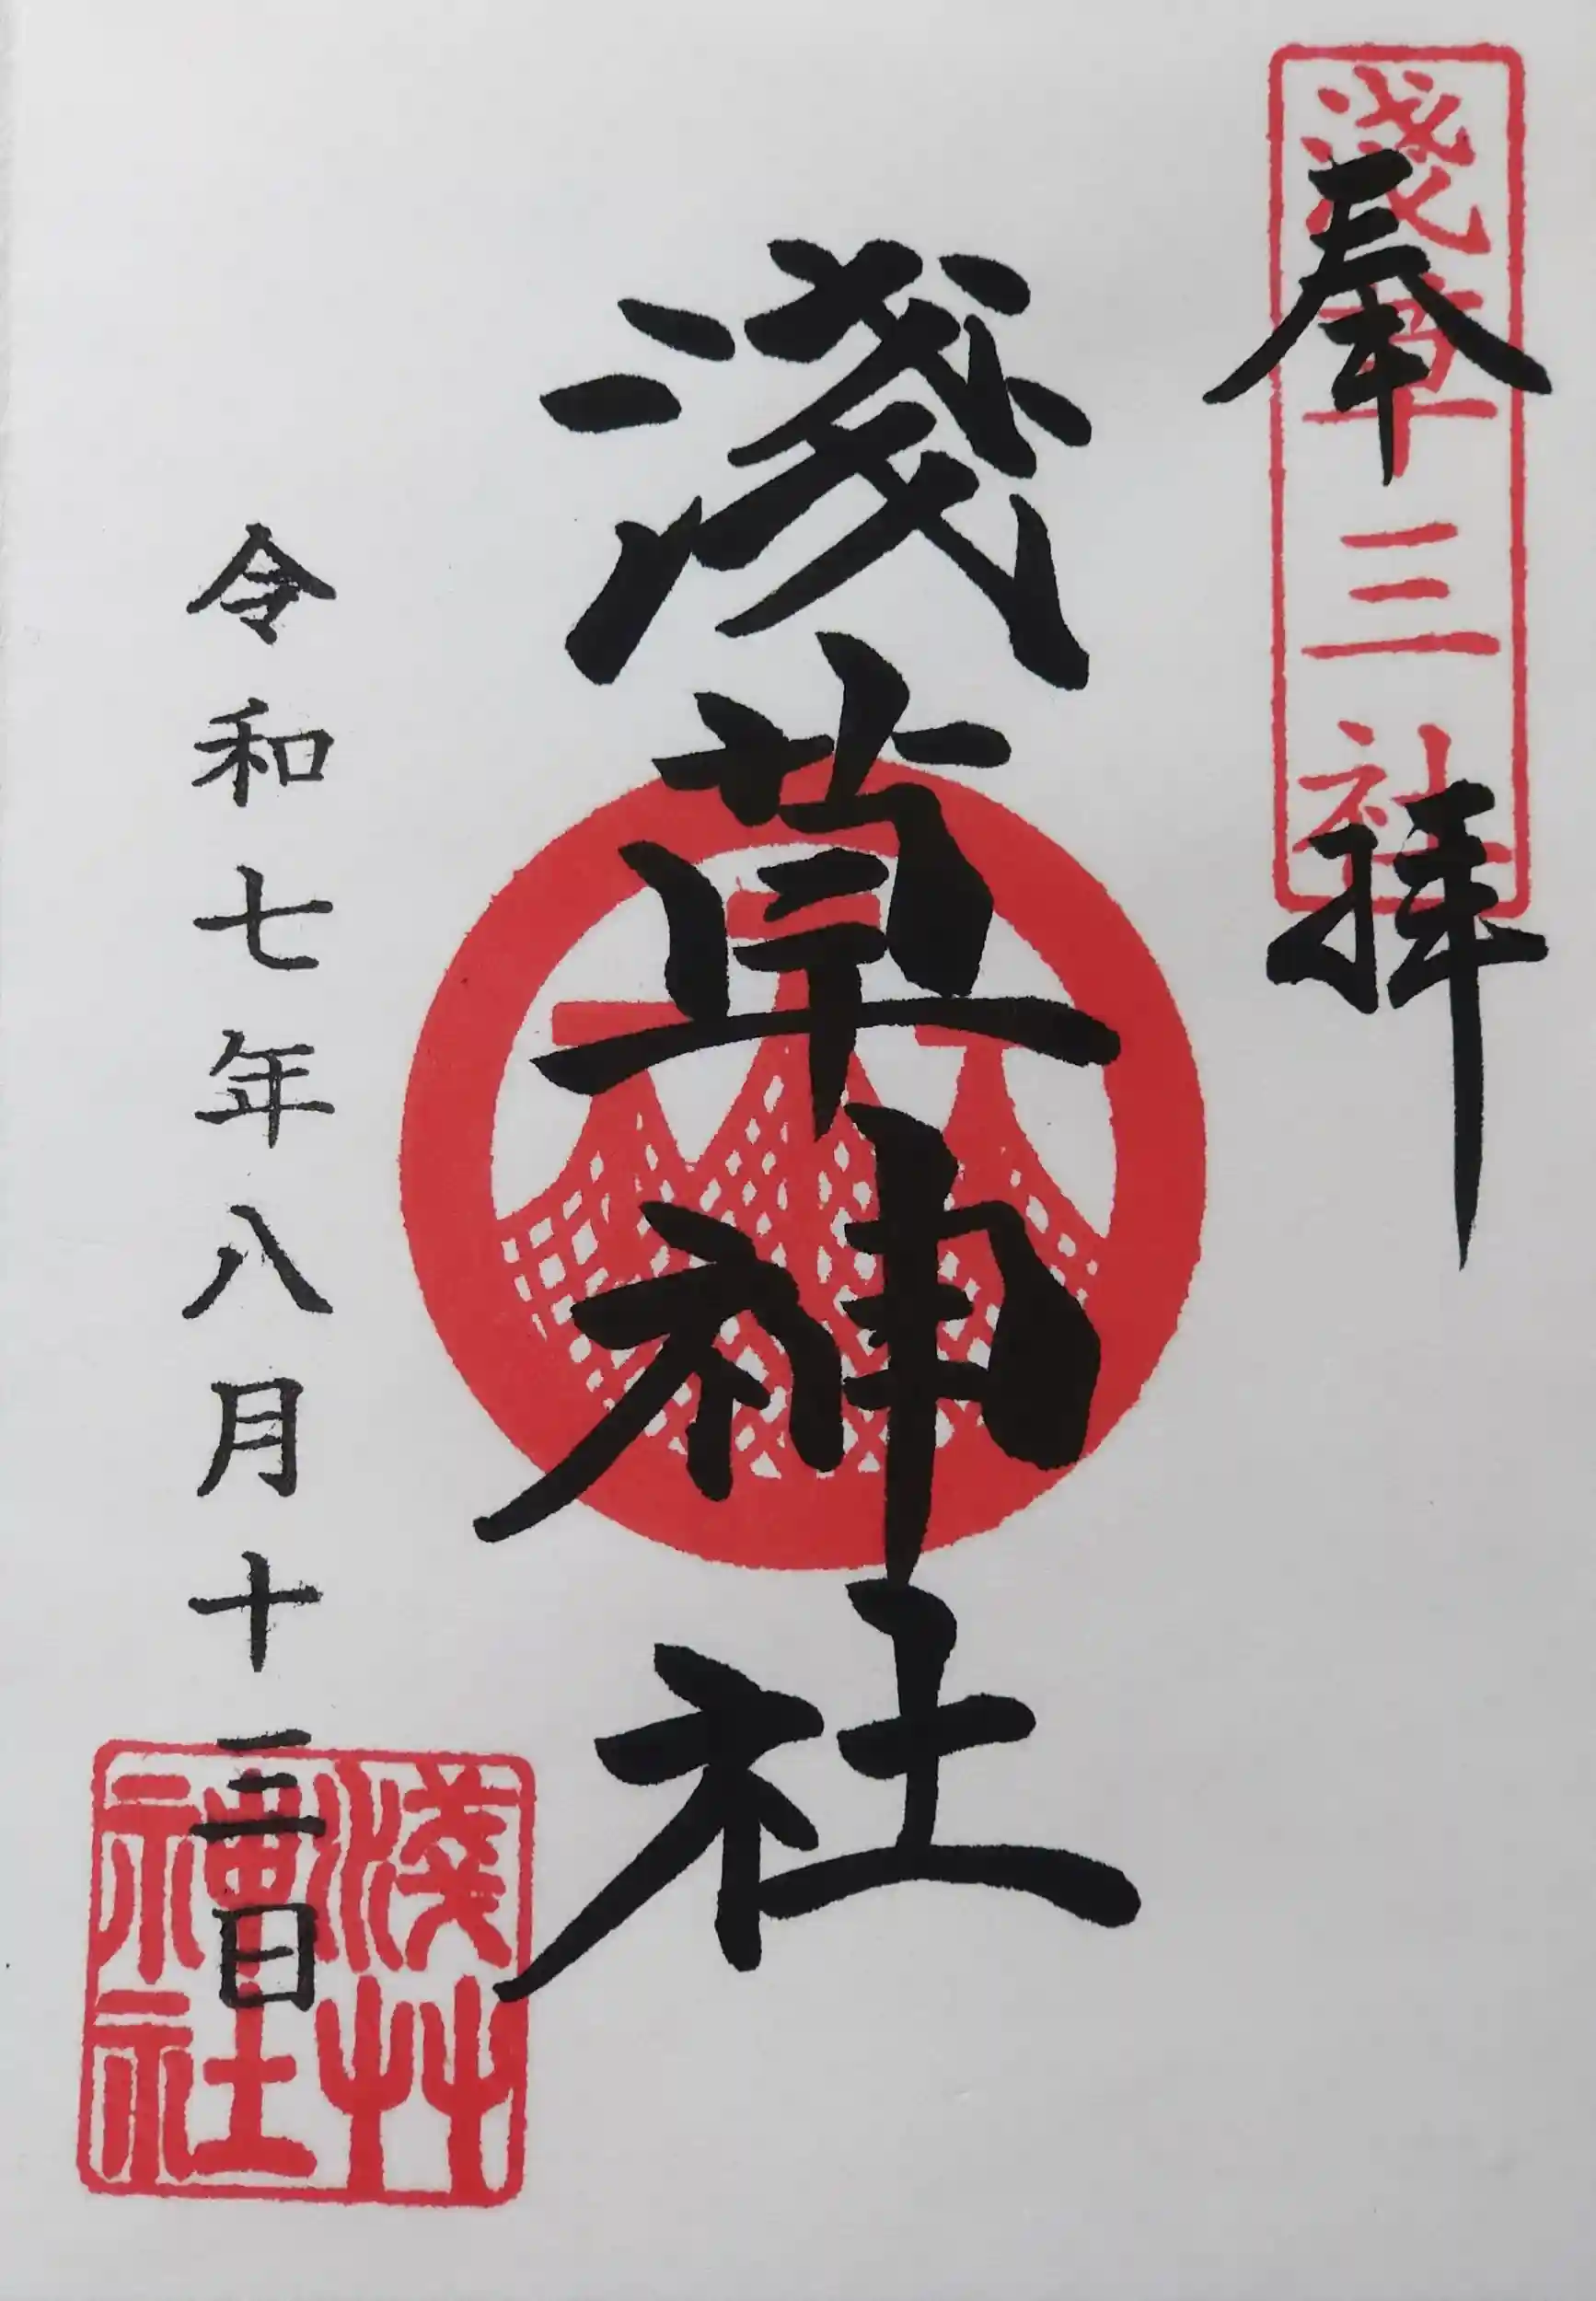 奉拝
淺草三社
淺草神社
令和七年八月十三日
淺艸
神社